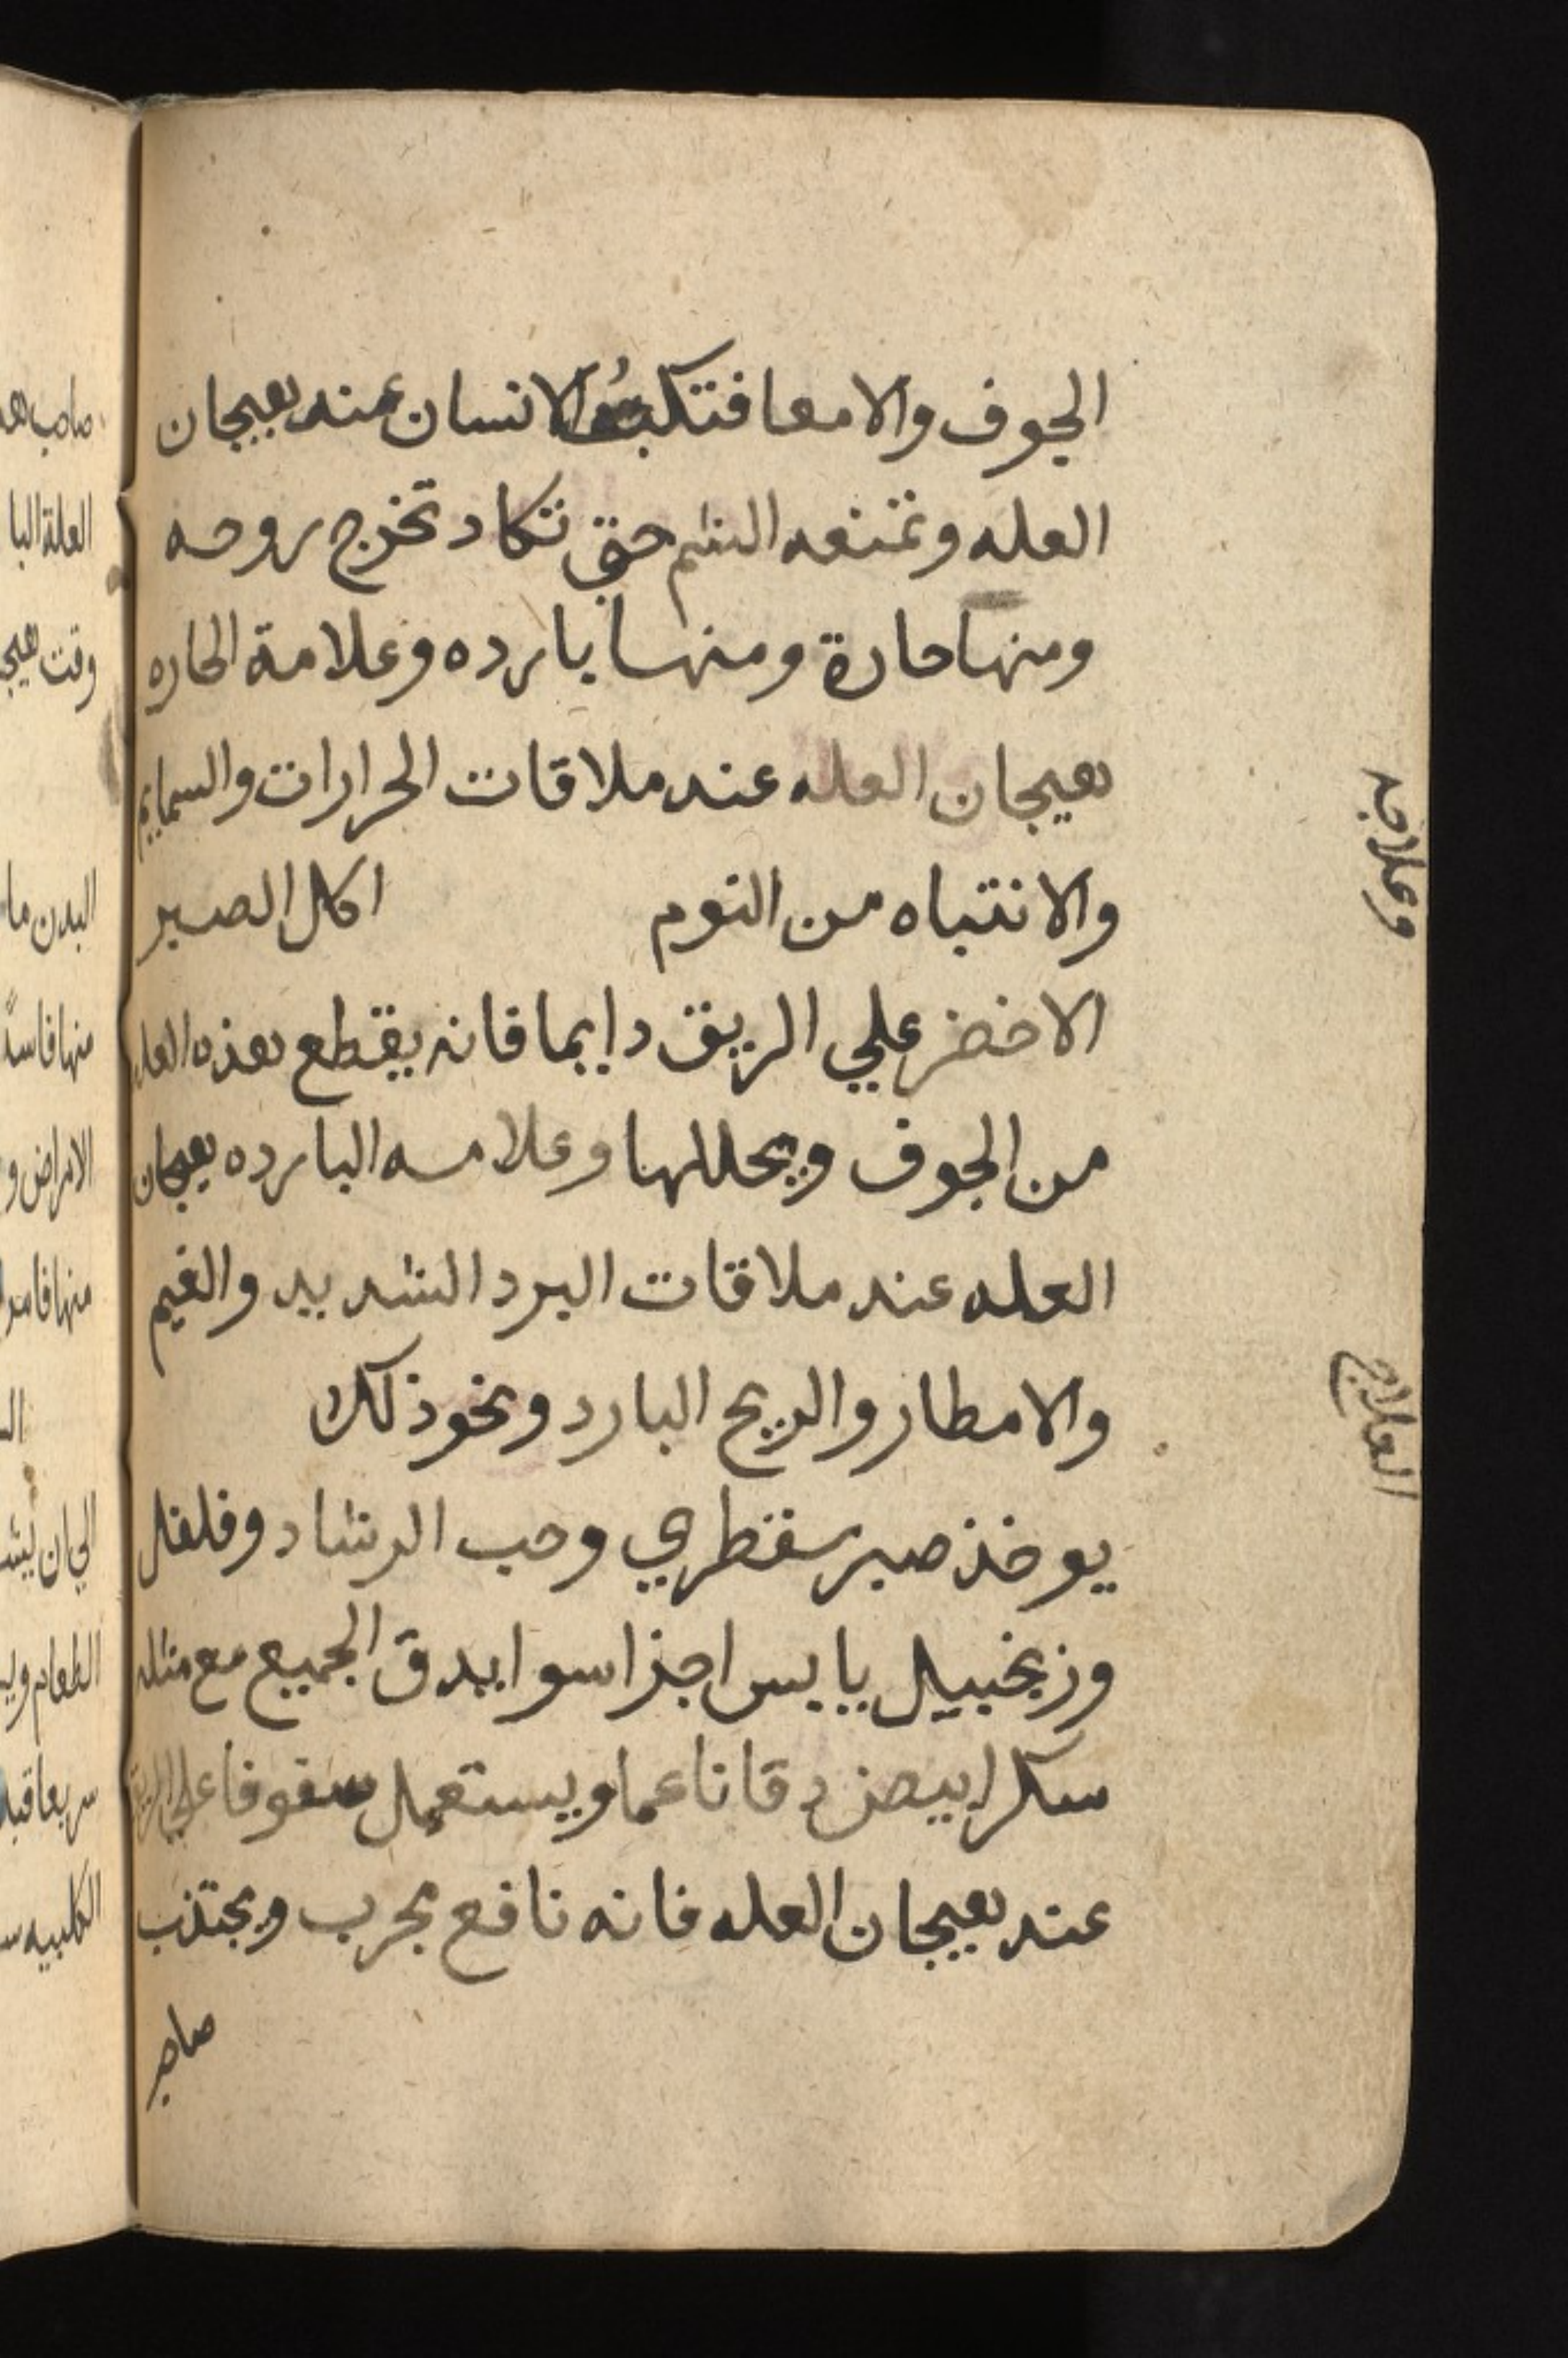 الجوف والامعا فتكبس الانسان عند هيجان
العله وتمنعه الشم حتي تكاد تخرج روحه
ومنها حارة ومنها بارده وعلامة الحاره
هيجان العله عند ملاقات الحرارات والسمايم
والانتباه من النوم اكل الصبر
الاخضر علي الريق دايما فانه يقطع هذه العله
من الجوف ويحللها وعلامه البارده هيجان
العله عند ملاقات البرد الشديد والغيم
والامطار والريح البارد ونحو ذلك
يوخذ صبر سقطري وحب الرشاد وفلفل
وزنجبيل يابس اجزا سوا يدق الجميع مع مثله
سكر ابيض دقا ناعما ويستعمل سفوفا علي الريق
عند هيجان العله فانه نافع مجرب ويجتنب
صاحب
وعلاجه
العلاج
صاحب هد
العلة البا
وقت هيج
البدن ما
منها فاسد
الامراض و
منها فامر